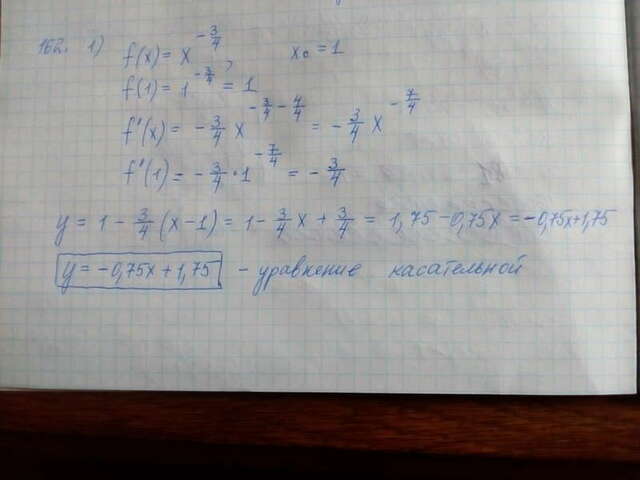 162. 1) f(x) = x^(-3/4) x₀ = 1
f(1) = 1^(-3/4) = 1
f'(x) = -3/4 x^(-3/4 - 4/4) = -3/4 x^(-7/4)
f'(1) = -3/4 · 1^(-7/4) = -3/4
y = 1 - 3/4 (x-1) = 1 - 3/4 x + 3/4 = 1,75 - 0,75x = -0,75x + 1,75
y = -0,75x + 1,75 - уравнение касательной